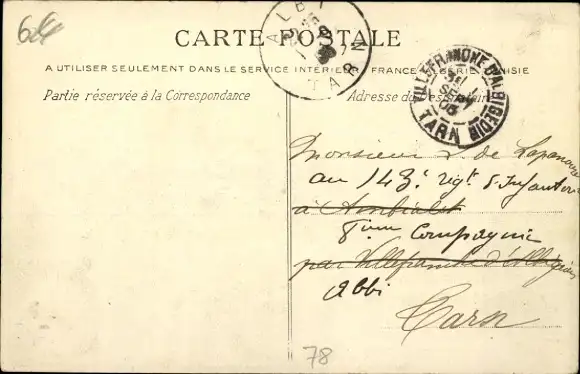 64
CARTE POSTALE
A UTILISER SEULEMENT DANS LE SERVICE INTERIEUR, FRANCE, ALGERIE, TUNISIE
Partie réservée à la Correspondance
Adresse du Destinataire
ALBI
TARN
VILLEFRANCHE D'ALBIGEOIS
SEPT
TARN
Monsieur de
au 143e Régt d'Infanterie
à Ambialet
8ième Compagnie
par Villefranche d'Albigeois
Albi
Tarn
78